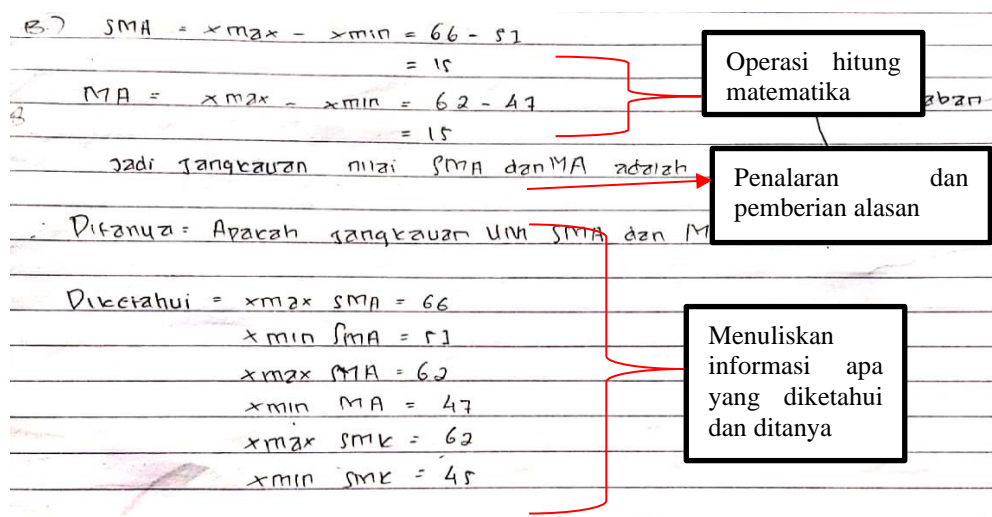 B.) SMA = xmax - xmin = 66 - 51
= 15
MA = xmax - xmin = 62 - 47
= 15
Jadi jangkauan nilai SMA dan MA adalah
Ditanya = Apakah jangkauan UNI SMA dan M
Diketahui = xmax SMA = 66
xmin SMA = 51
xmax MA = 62
xmin MA = 47
xmax smk = 62
xmin smk = 45
Operasi hitung
matematika
Penalaran dan
pemberian alasan
Menuliskan
informasi apa
yang diketahui
dan ditanya